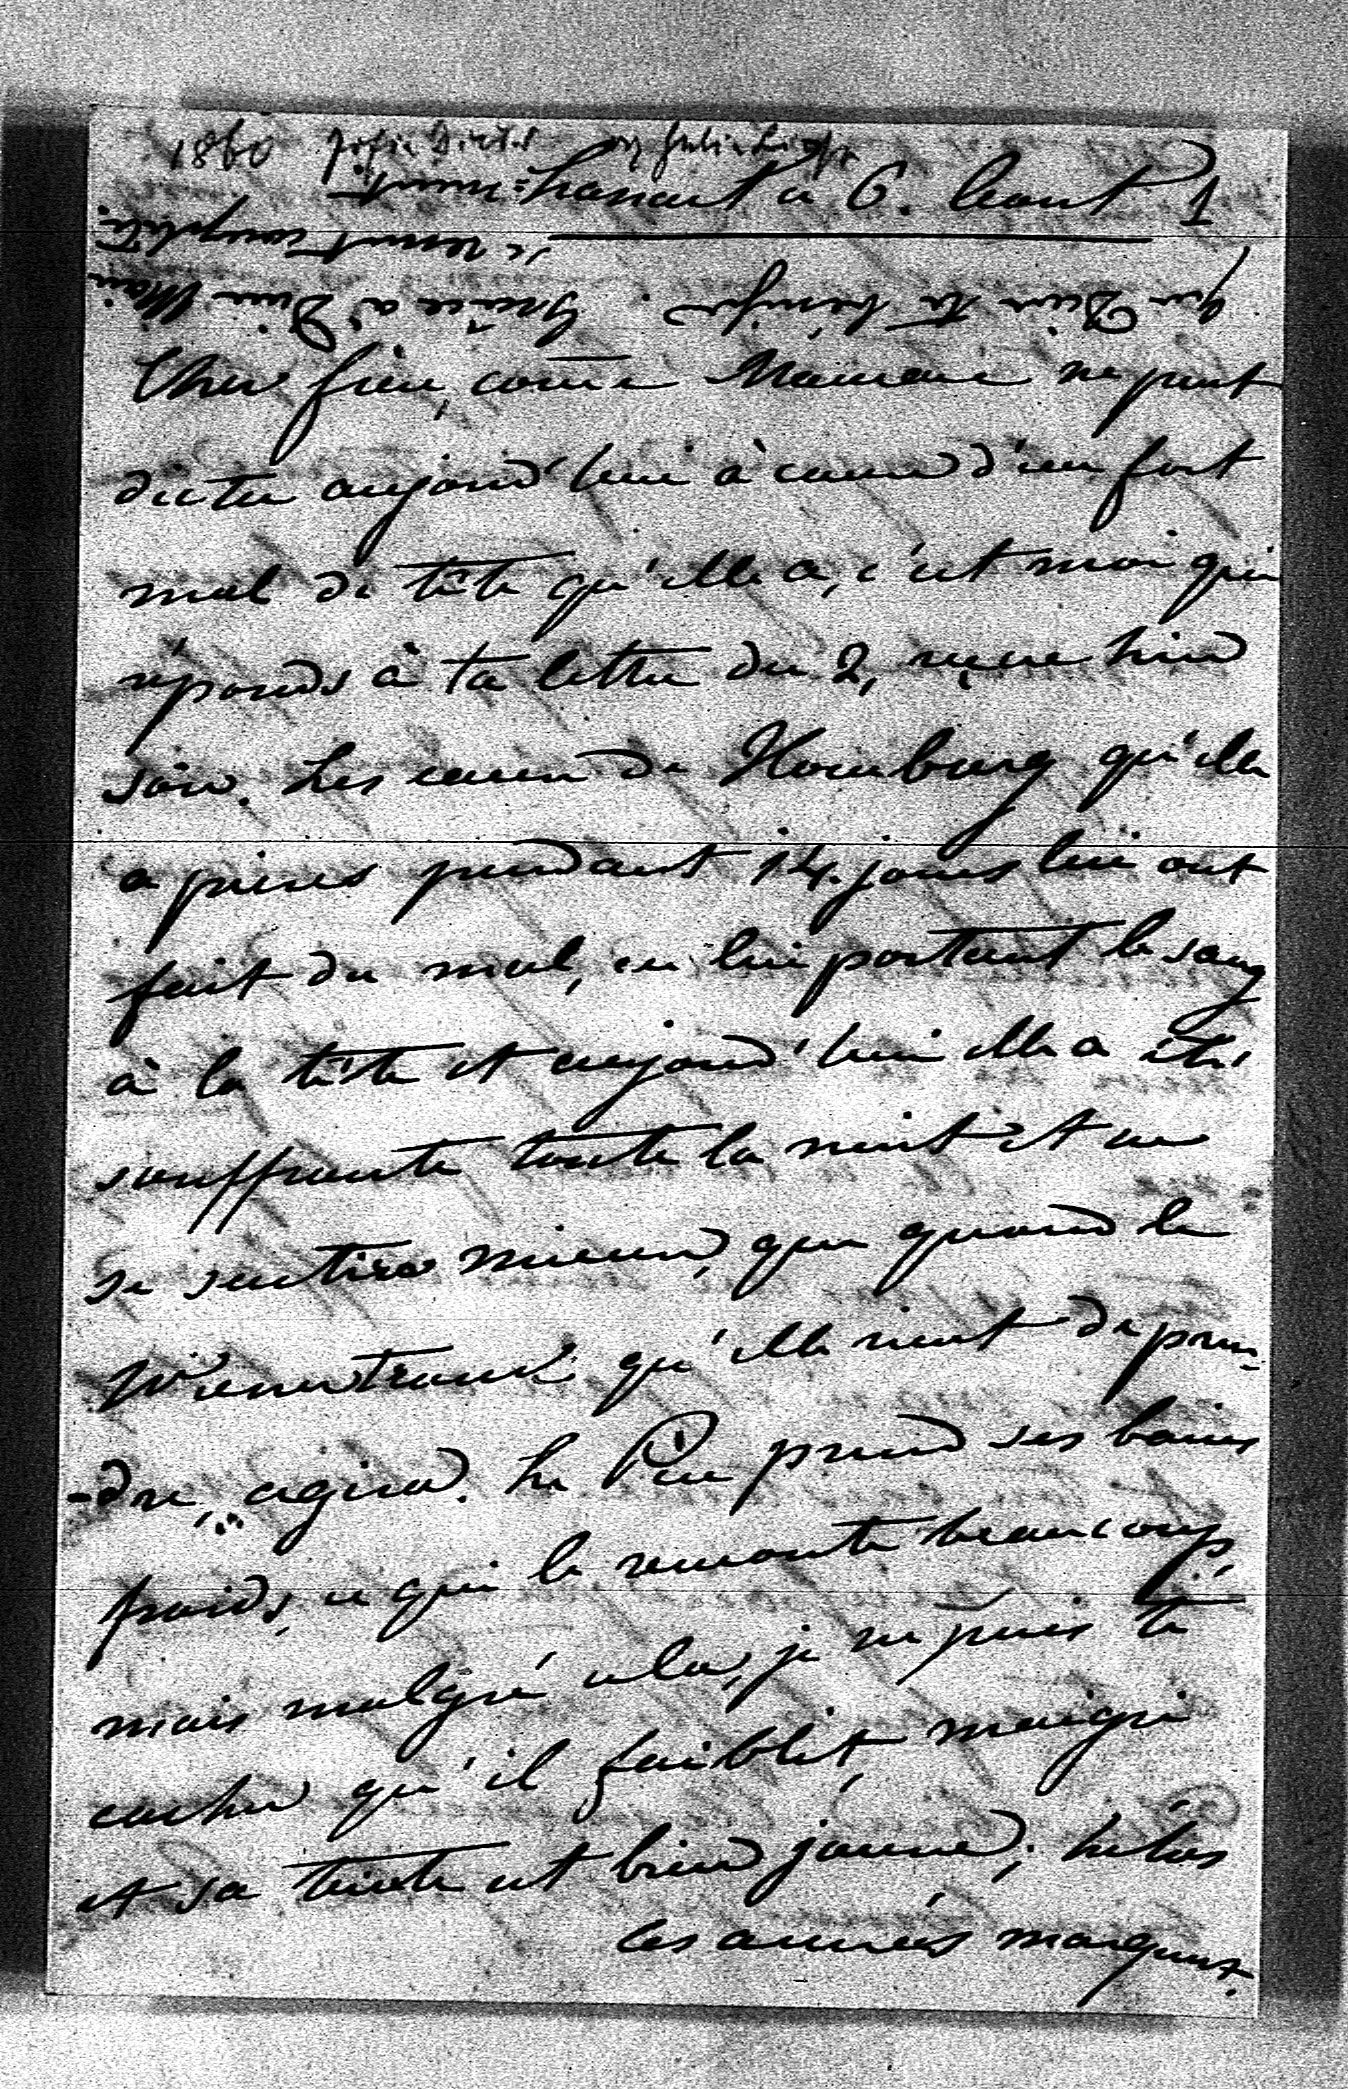 1860
à 6. heures 1
Que Dieu te bénisse. Grâce à Dieu
Cher frère, come Maman ne peut
dicter aujourd'hui à cause d'un fort
mal de tête qu'elle a, c'est moi qui
réponds à ta lettre du 2, reçue hier
soir. Les eaux de Hombourg qu'elle
a prises pendant 14. jours lui ont
fait du mal, en lui portant le sang
à la tête et aujourd'hui elle a été
souffrante toute la nuit et ne
se sentira mieux, que quand le
Wienertrank qu'elle vient de pren-
-dre, agira. Le Père prend ses bains
froids, ce qui le remonte beaucoup,
mais malgré cela, je ne puis te
cacher qu'il faiblit, maigri
et sa teinte est bien jaune; hélas
les années marquent.